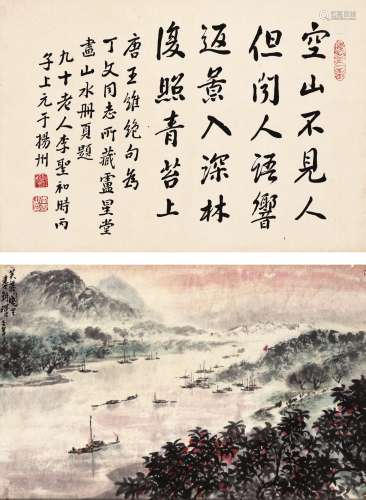 空山不見人
但聞人語響
返景入深林
復照青苔上
唐王維絕句為
丁文同志所藏盧星堂
畫山水冊頁題
九十老人李聖和時丙
子上元于揚州